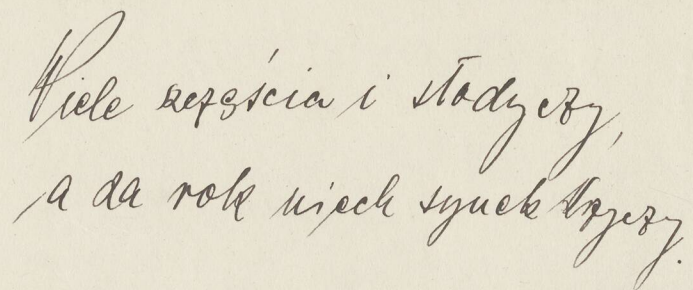 Wiele szczęścia i słodyczy,
a za rok niech synek krzyczy.